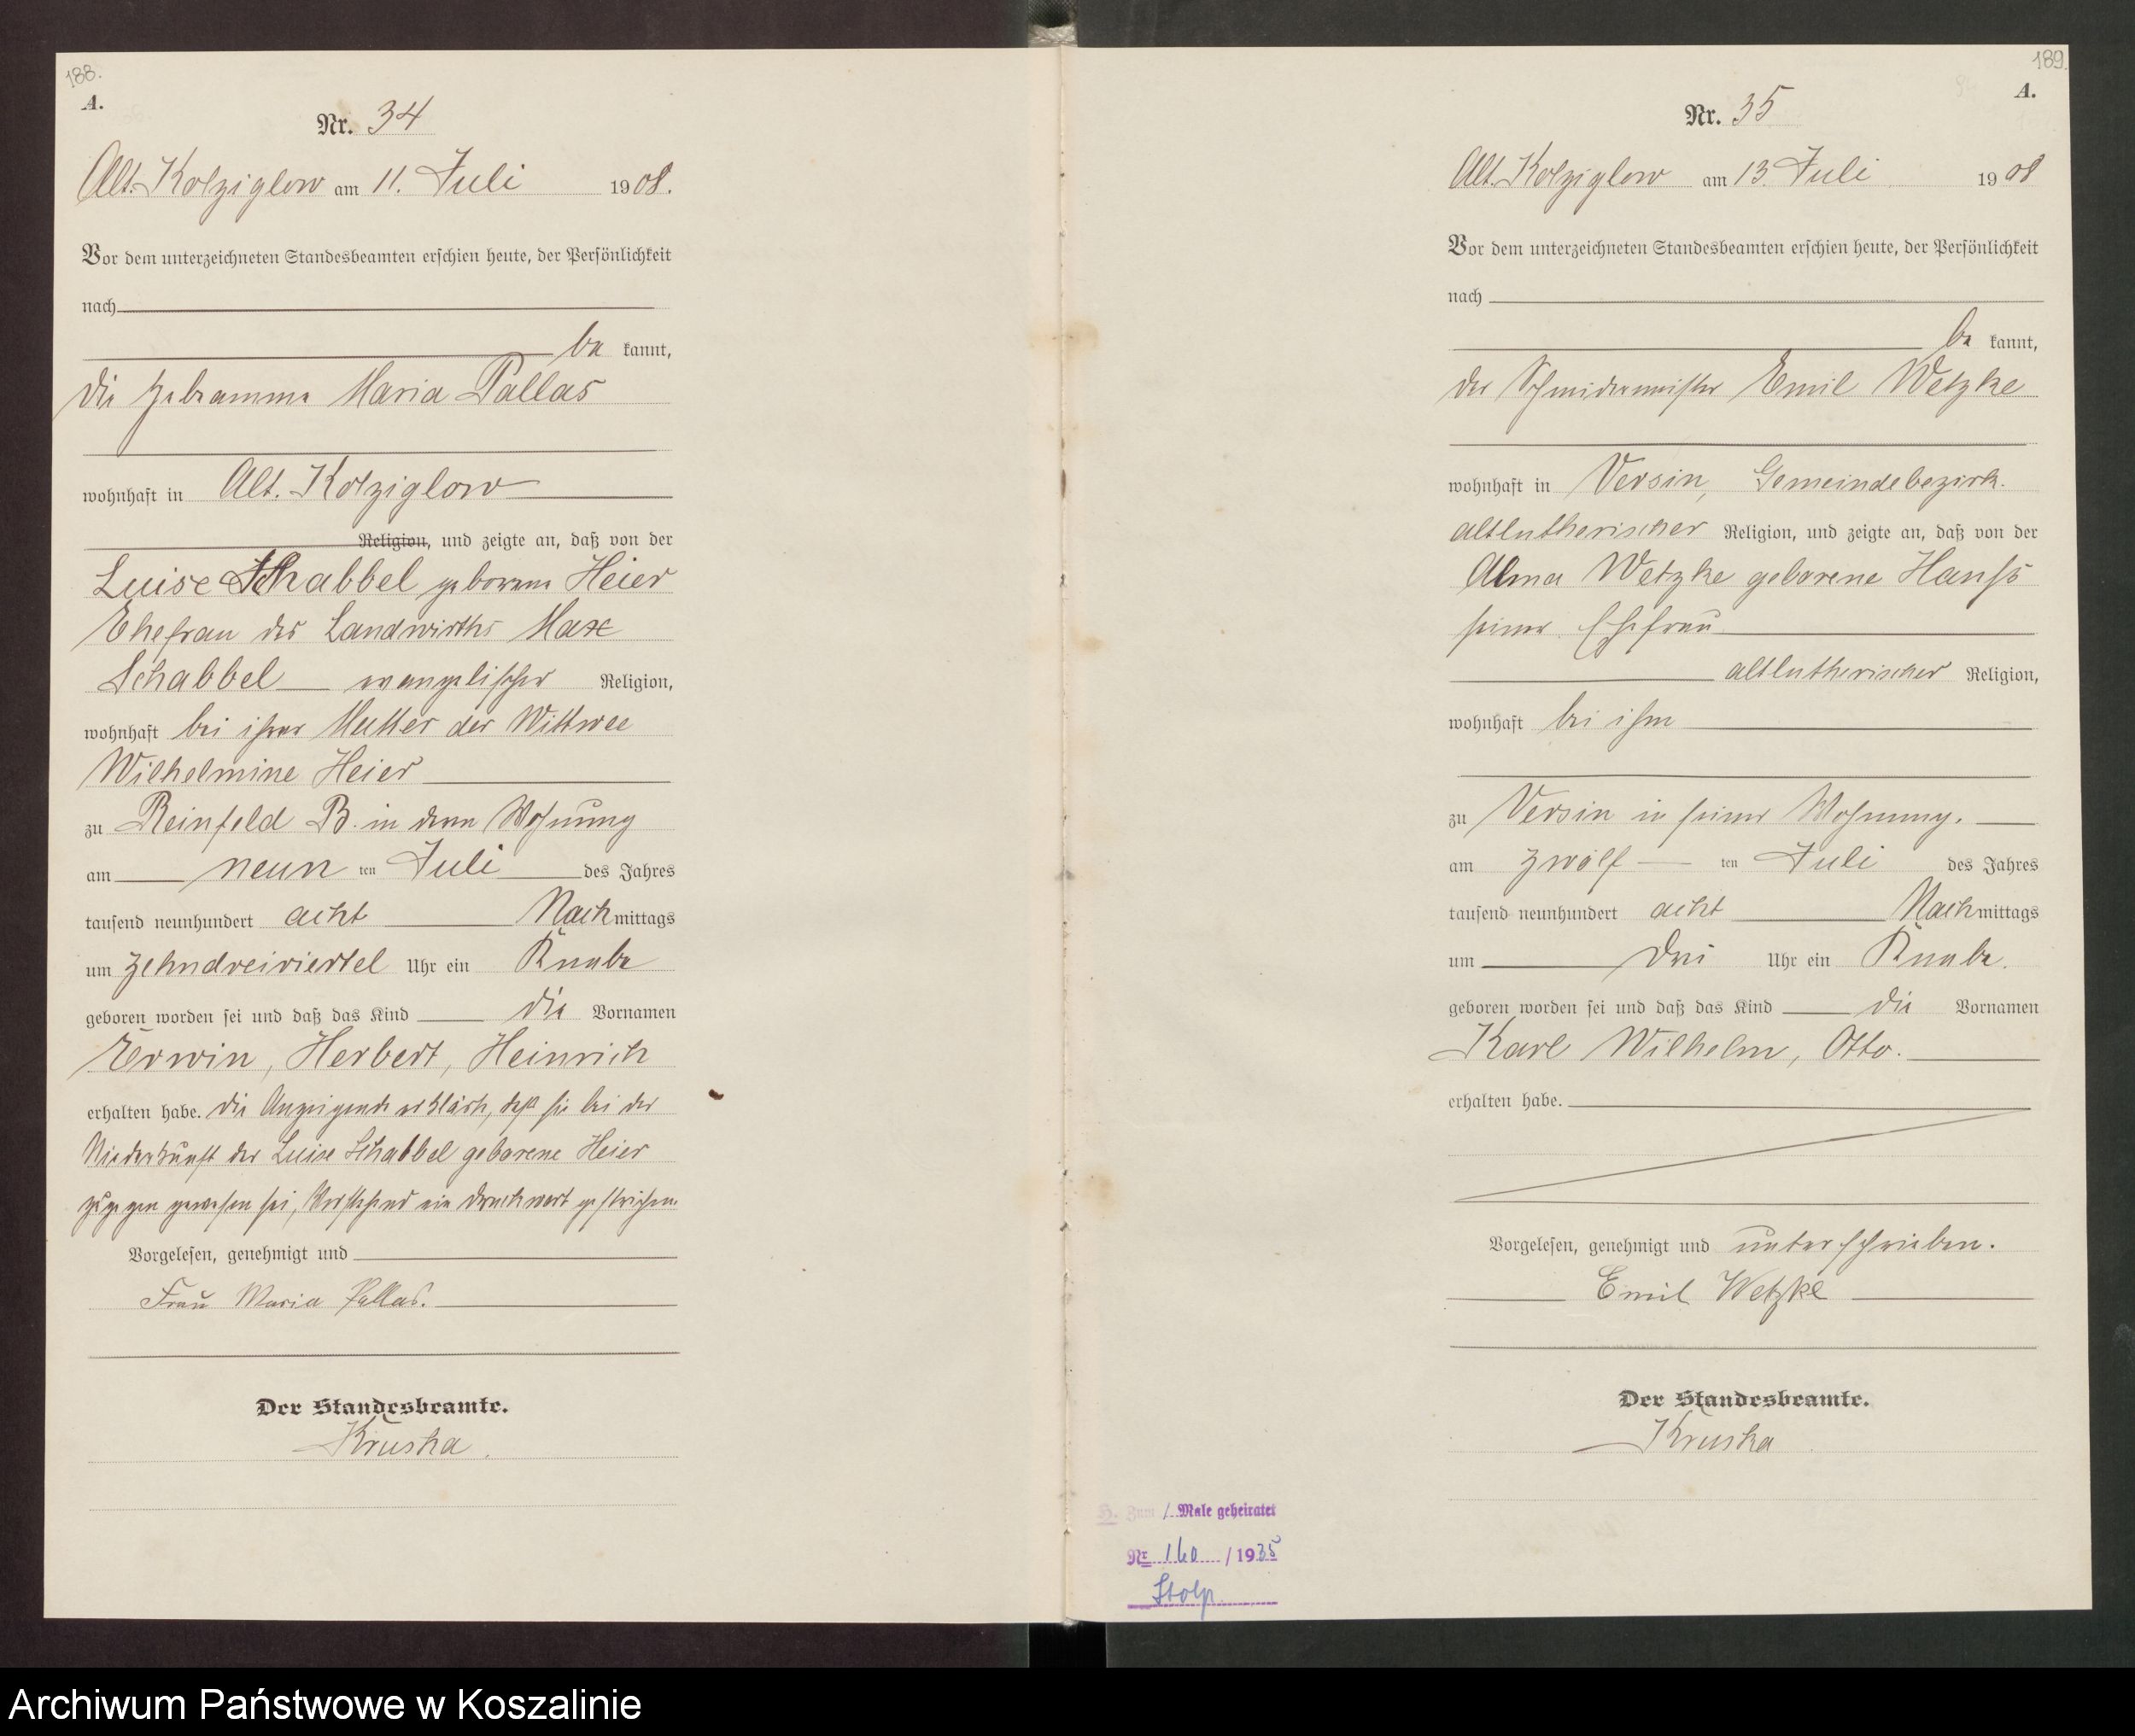 188.
A.
Nr. 34
Alt. Kolziglow am 11. Juli 1908.
Vor dem unterzeichneten Standesbeamten erschien heute, der Persönlichkeit
nach
be kannt,
die Hebamme Maria Pallas
wohnhaft in Alt. Kolziglow
Religion, und zeigte an, daß von der
Luise Schabbel geborene Heier
Ehefrau des Landwirths Max
Schabbel evangelischer Religion,
wohnhaft bei ihrer Mutter der Wittwee
Wilhelmine Heier
zu Reinfeld B. in deren Wohnung
am neun ten Juli des Jahres
tausend neunhundert acht Nachmittags
um zehndreiviertel Uhr ein Knabe
geboren worden sei und daß das Kind die Vornamen
Erwin, Herbert, Heinrich
erhalten habe. Die Anzeigende erklärte, daß sie bei der
Niederkunft der Luise Schabbel geborene Heier
zugegen gewesen sei, Vorstehend ein Druckwort gestrichen.
Vorgelesen, genehmigt und
Frau Maria Pallas.
Der Standesbeamte.
Kruska.
189.
A.
Nr. 35
Alt. Kolziglow am 13. Juli 1908
Vor dem unterzeichneten Standesbeamten erschien heute, der Persönlichkeit
nach
be kannt,
der Schneidermeister Emil Wetzke
wohnhaft in Versin, Gemeindebezirk.
altlutherischer Religion, und zeigte an, daß von der
Alma Wetzke geborene Hanss
seiner Ehefrau
altlutherischer Religion,
wohnhaft bei ihm
zu Versin in seiner Wohnung.
am zwölf ten Juli des Jahres
tausend neunhundert acht Nachmittags
um drei Uhr ein Knabe.
geboren worden sei und daß das Kind die Vornamen
Karl Wilhelm, Otto.
erhalten habe.
Vorgelesen, genehmigt und unterschrieben.
Emil Wetzke
Der Standesbeamte.
Kruska
H. Zum / Male geheiratet
Nr. 160 / 1935
Stolp
Archiwum Państwowe w Koszalinie